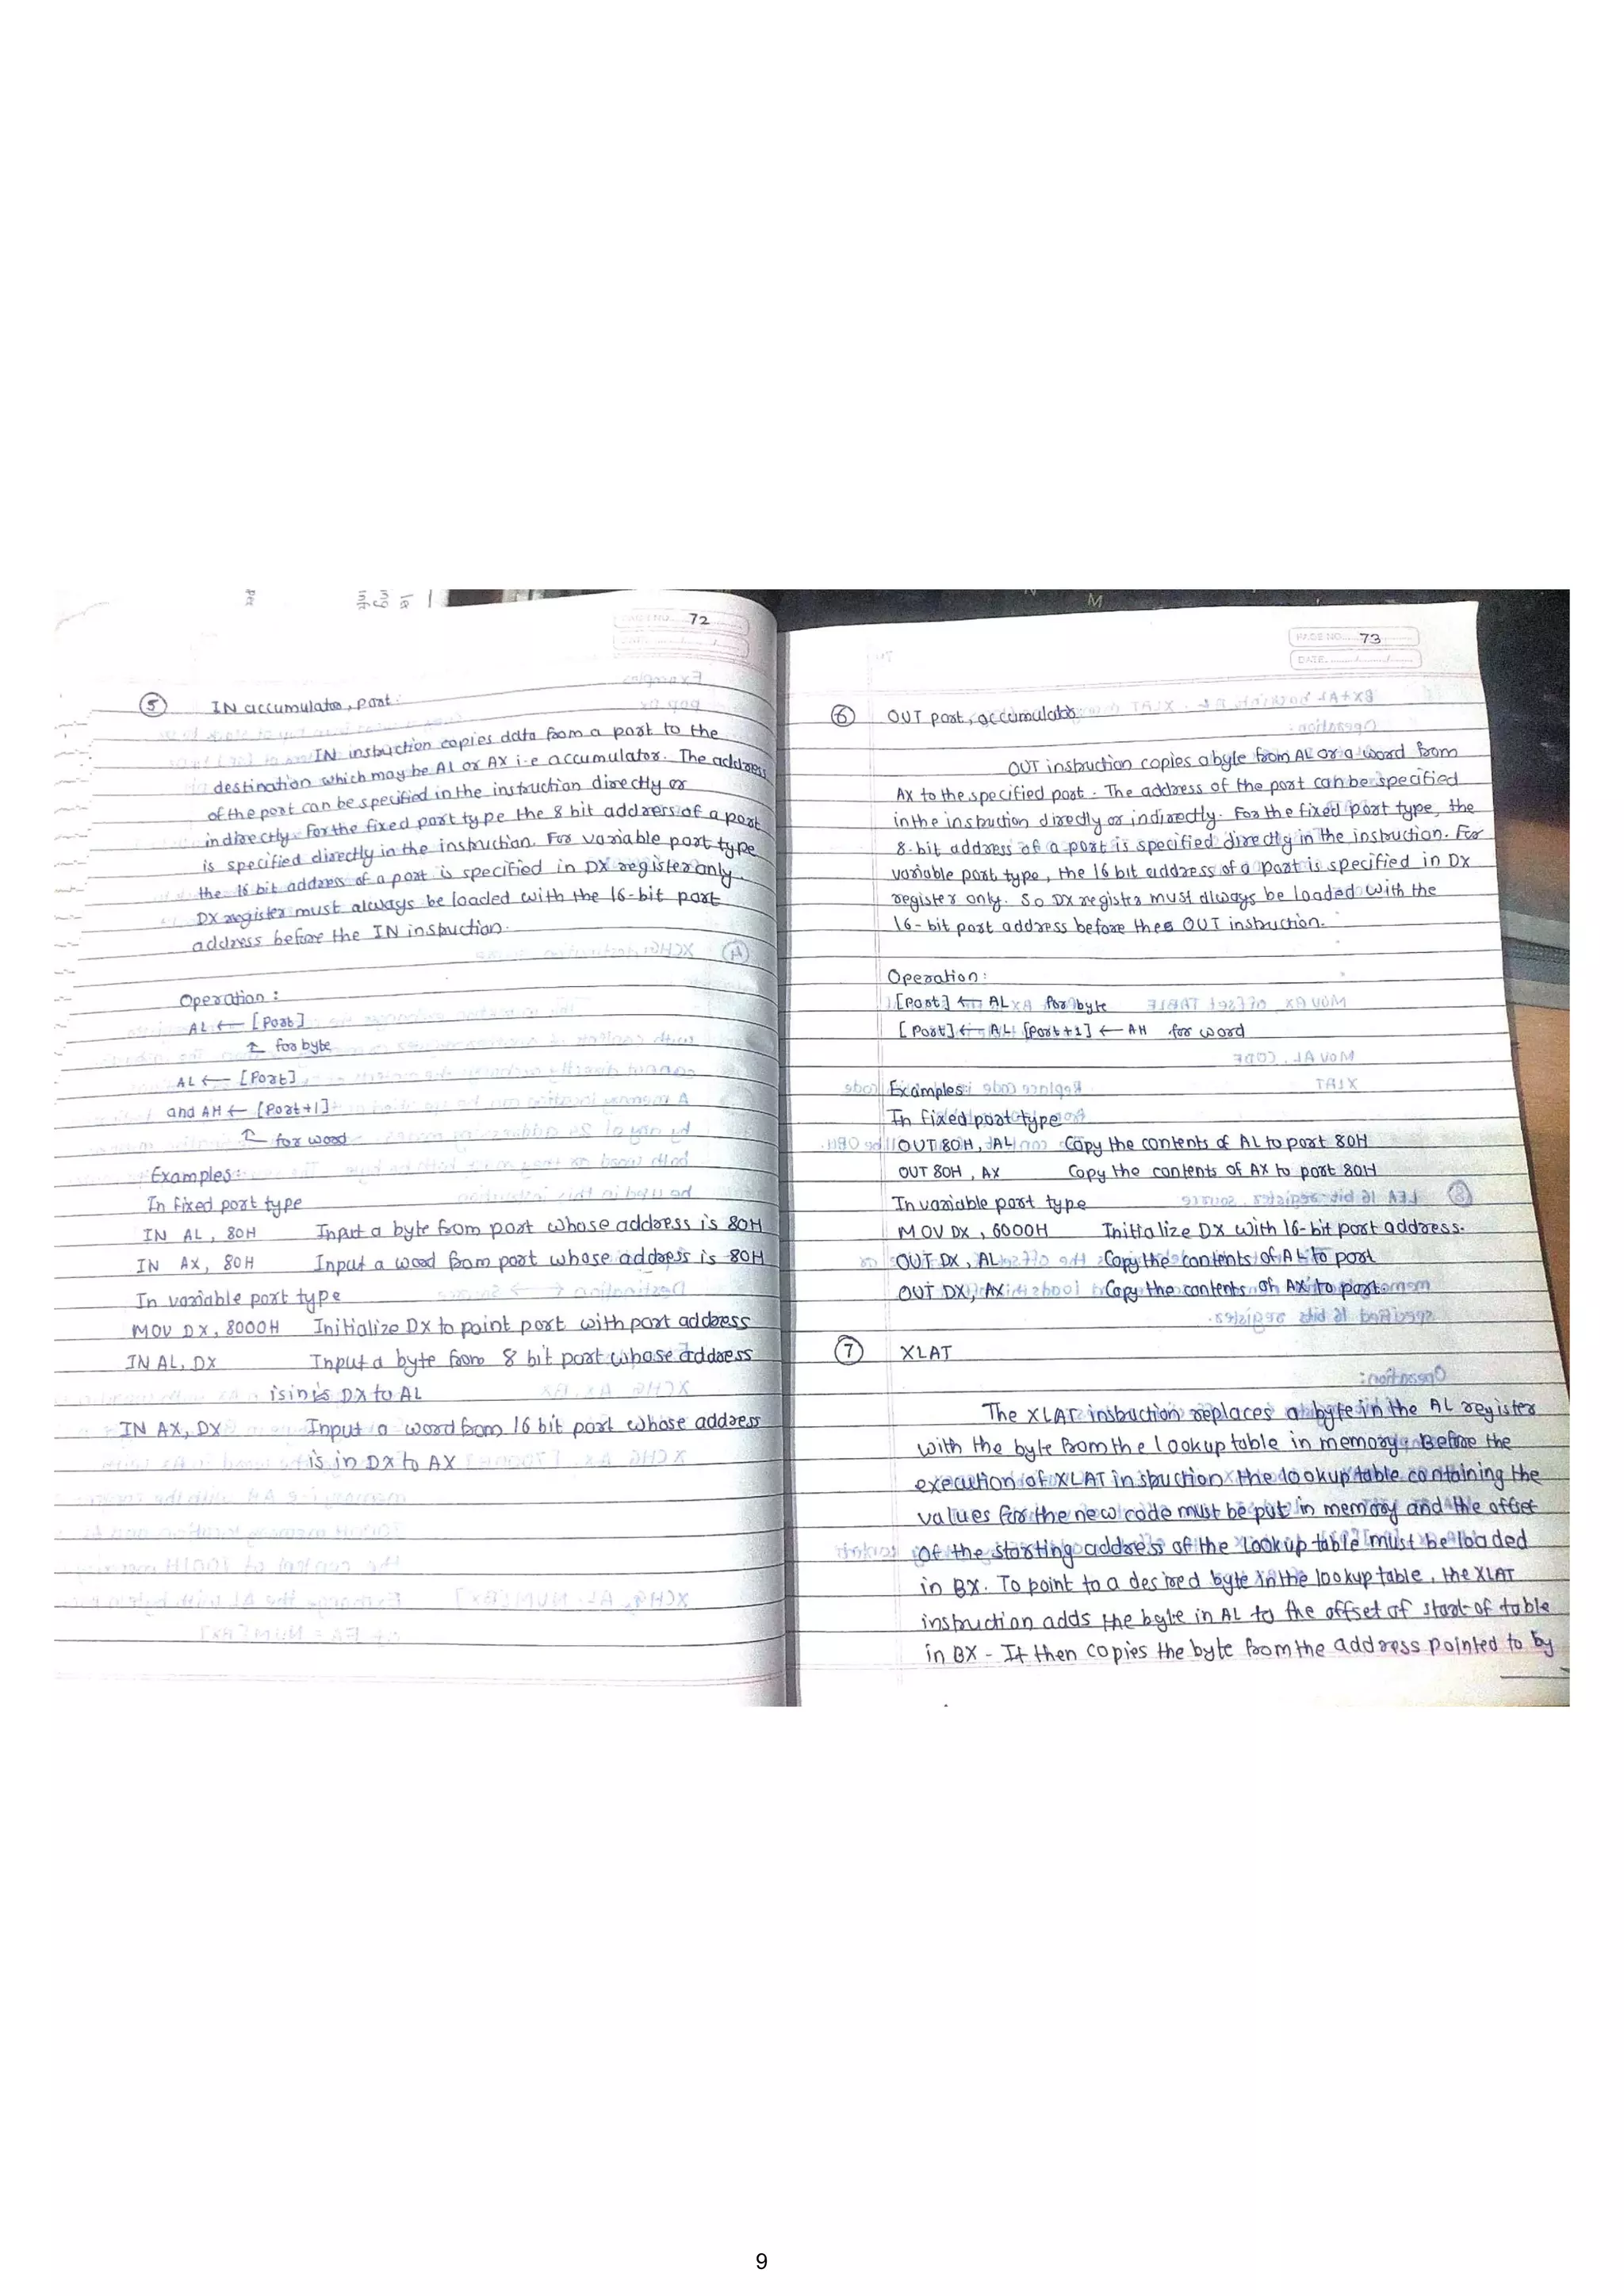 PAGE NO. 72
⑤ IN accumulator, port:
IN instruction copies data from a port to the
destination which may be AL or AX i.e accumulator. The address
of the port can be specified in the instruction directly or
indirectly. For the fixed port type the 8 bit address of a port
is specified directly in the instruction. For variable port type
the 16 bit address of a port is specified in DX register only.
DX register must always be loaded with the 16-bit port
address before the IN instruction.
Operation :
AL ← [Port]
↑ for byte
AL ← [Port]
and AH ← [Port+1]
↑ for word
Examples:
In fixed port type
IN AL, 80H Input a byte from port whose address is 80H
IN AX, 80H Input a word from port whose address is 80H
In variable port type
MOV DX, 8000H Initialize DX to point port with port address
IN AL, DX Input a byte from 8 bit port whose address
is in DX to AL
IN AX, DX Input a word from 16 bit port whose address
is in DX to AX
PAGE NO. 73
DATE
⑥ OUT port, accumulator
OUT instruction copies a byte from AL or a word from
AX to the specified port. The address of the port can be specified
in the instruction directly or indirectly. For the fixed port type, the
8-bit address of a port is specified directly in the instruction. For
variable port type, the 16 bit address of a port is specified in DX
register only. So DX register must always be loaded with the
16-bit port address before the OUT instruction.
Operation:
[Port] ← AL for byte
[Port] ← AL [Port+1] ← AH for word
Examples:
In fixed port type
OUT 80H, AL Copy the contents of AL to port 80H
OUT 80H, AX Copy the contents of AX to port 80H
In variable port type
MOV DX, 6000H Initialize DX with 16-bit port address.
OUT DX, AL Copy the contents of AL to port
OUT DX, AX Copy the contents of AX to port.
⑦ XLAT
The XLAT instruction replaces a byte in the AL register
with the byte from the lookup table in memory. Before the
execution of XLAT instruction the lookup table containing the
values for the new code must be put in memory and the offset
of the starting address of the lookup table must be loaded
in BX. To point to a desired byte in the lookup table, the XLAT
instruction adds the byte in AL to the offset of start of table
in BX - It then copies the byte from the address pointed to by
9